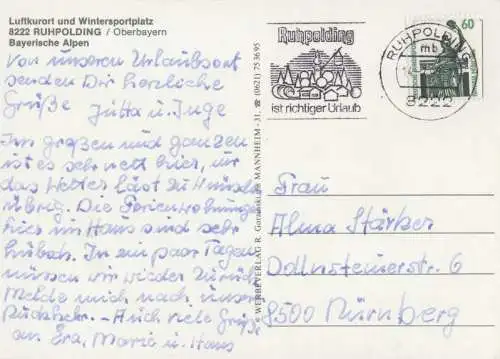 Luftkurort und Wintersportplatz
8222 RUHPOLDING / Oberbayern
Bayerische Alpen
Von unserem Urlaubsort
senden Dir herzliche
Grüße Jutta u. Inge
Im großen und ganzen
ist es sehr nett hier, nur
das Wetter läßt zu wünschen
übrig. Die Ferienwohnungen
hier im Haus sind sehr
hübsch. In ein paar Tagen
müssen wir wieder zurück
Melde mich nach unserer
Rückkehr. - Auch viele Grüße
an Eva, Maria u. Hans
© WERBEVERLAG R. MANNHEIM - 31, ☎ (0621) 75 36 95
Ruhpolding
ist richtiger Urlaub
RUHPOLDING
mb
8222
60
Frau
Alma Stärker
8500 Nürnberg